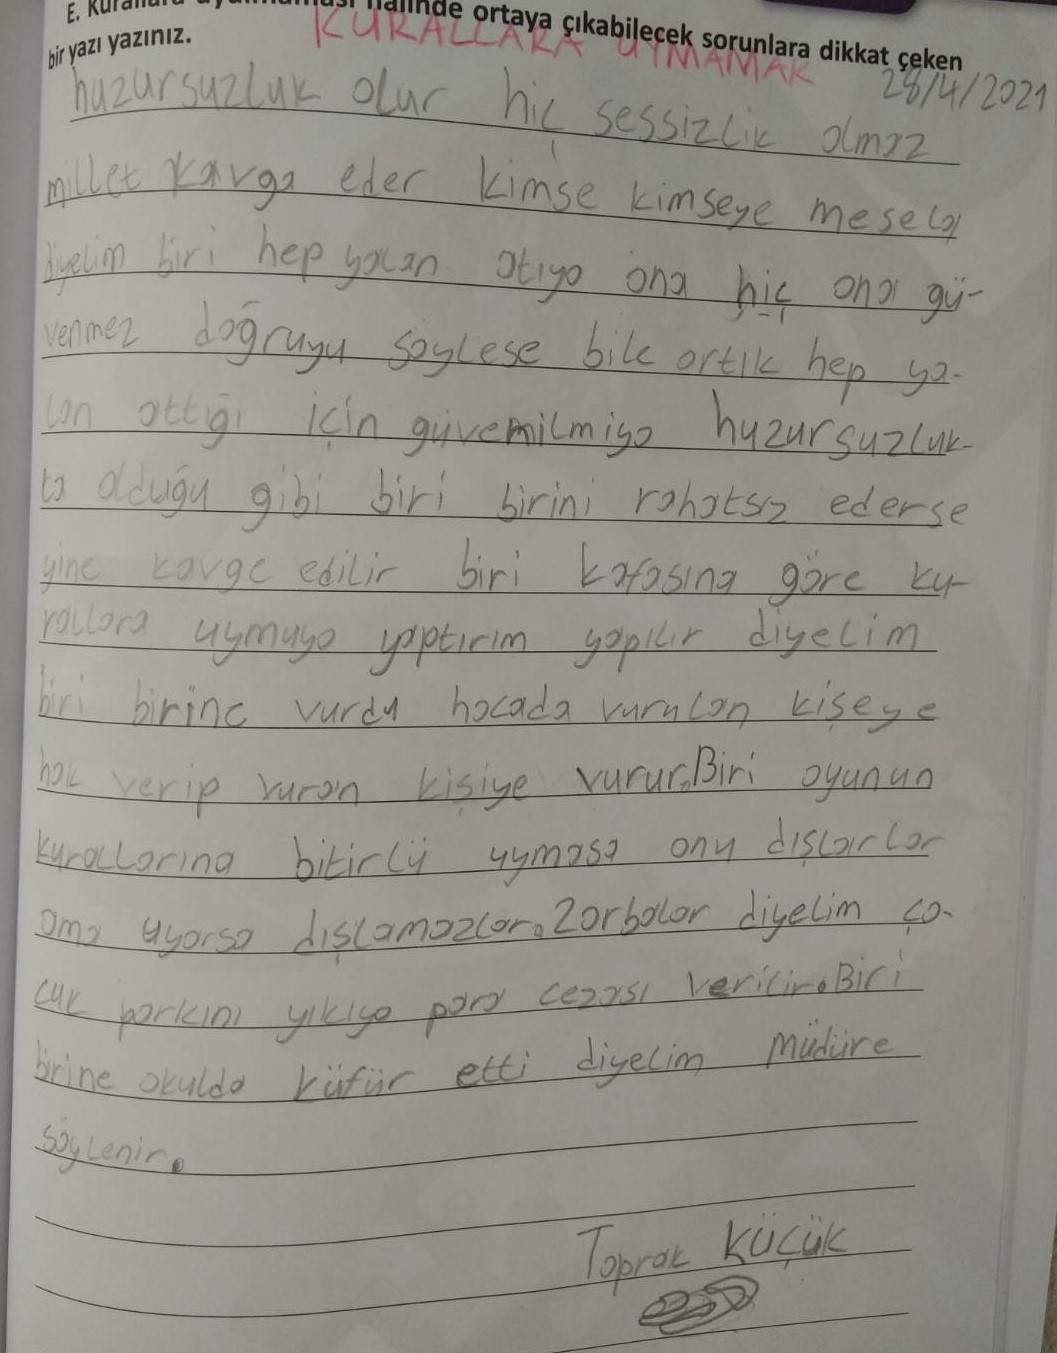 E. Kurallara uyulmaması hâlinde ortaya çıkabilecek sorunlara dikkat çeken
bir yazı yazınız.
KURALLARA UYMAMAK
28/4/2021
huzursuzluk olur hiç sessizlik olmaz
millet kavga eder kimse kimseye mesela
diyelim biri hep yalan atıyo ona hiç ona gü-
venmez doğruyu söylese bile artık hep ya-
lan attığı için güvenilmiyo huzursuzluk-
ta olduğu gibi biri birini rahatsız ederse
yine kavge edilir biri kafasına göre ku-
rallara uymuyo yaptırım yapılır diyelim
biri birine vurdu hocada vurulan kişeye
hak verip vuran kişiye vurur.Biri oyunun
kurallarına bitirlü uymasa onu dışlarlar
ama uyarsa dışlamazlar.Zorbalar diyelim ço-
cuk parkını yıkıyo para cezası verilir.Biri
birine okulda küfür etti diyelim Müdüre
söylenir.
Toprak KÜÇÜK